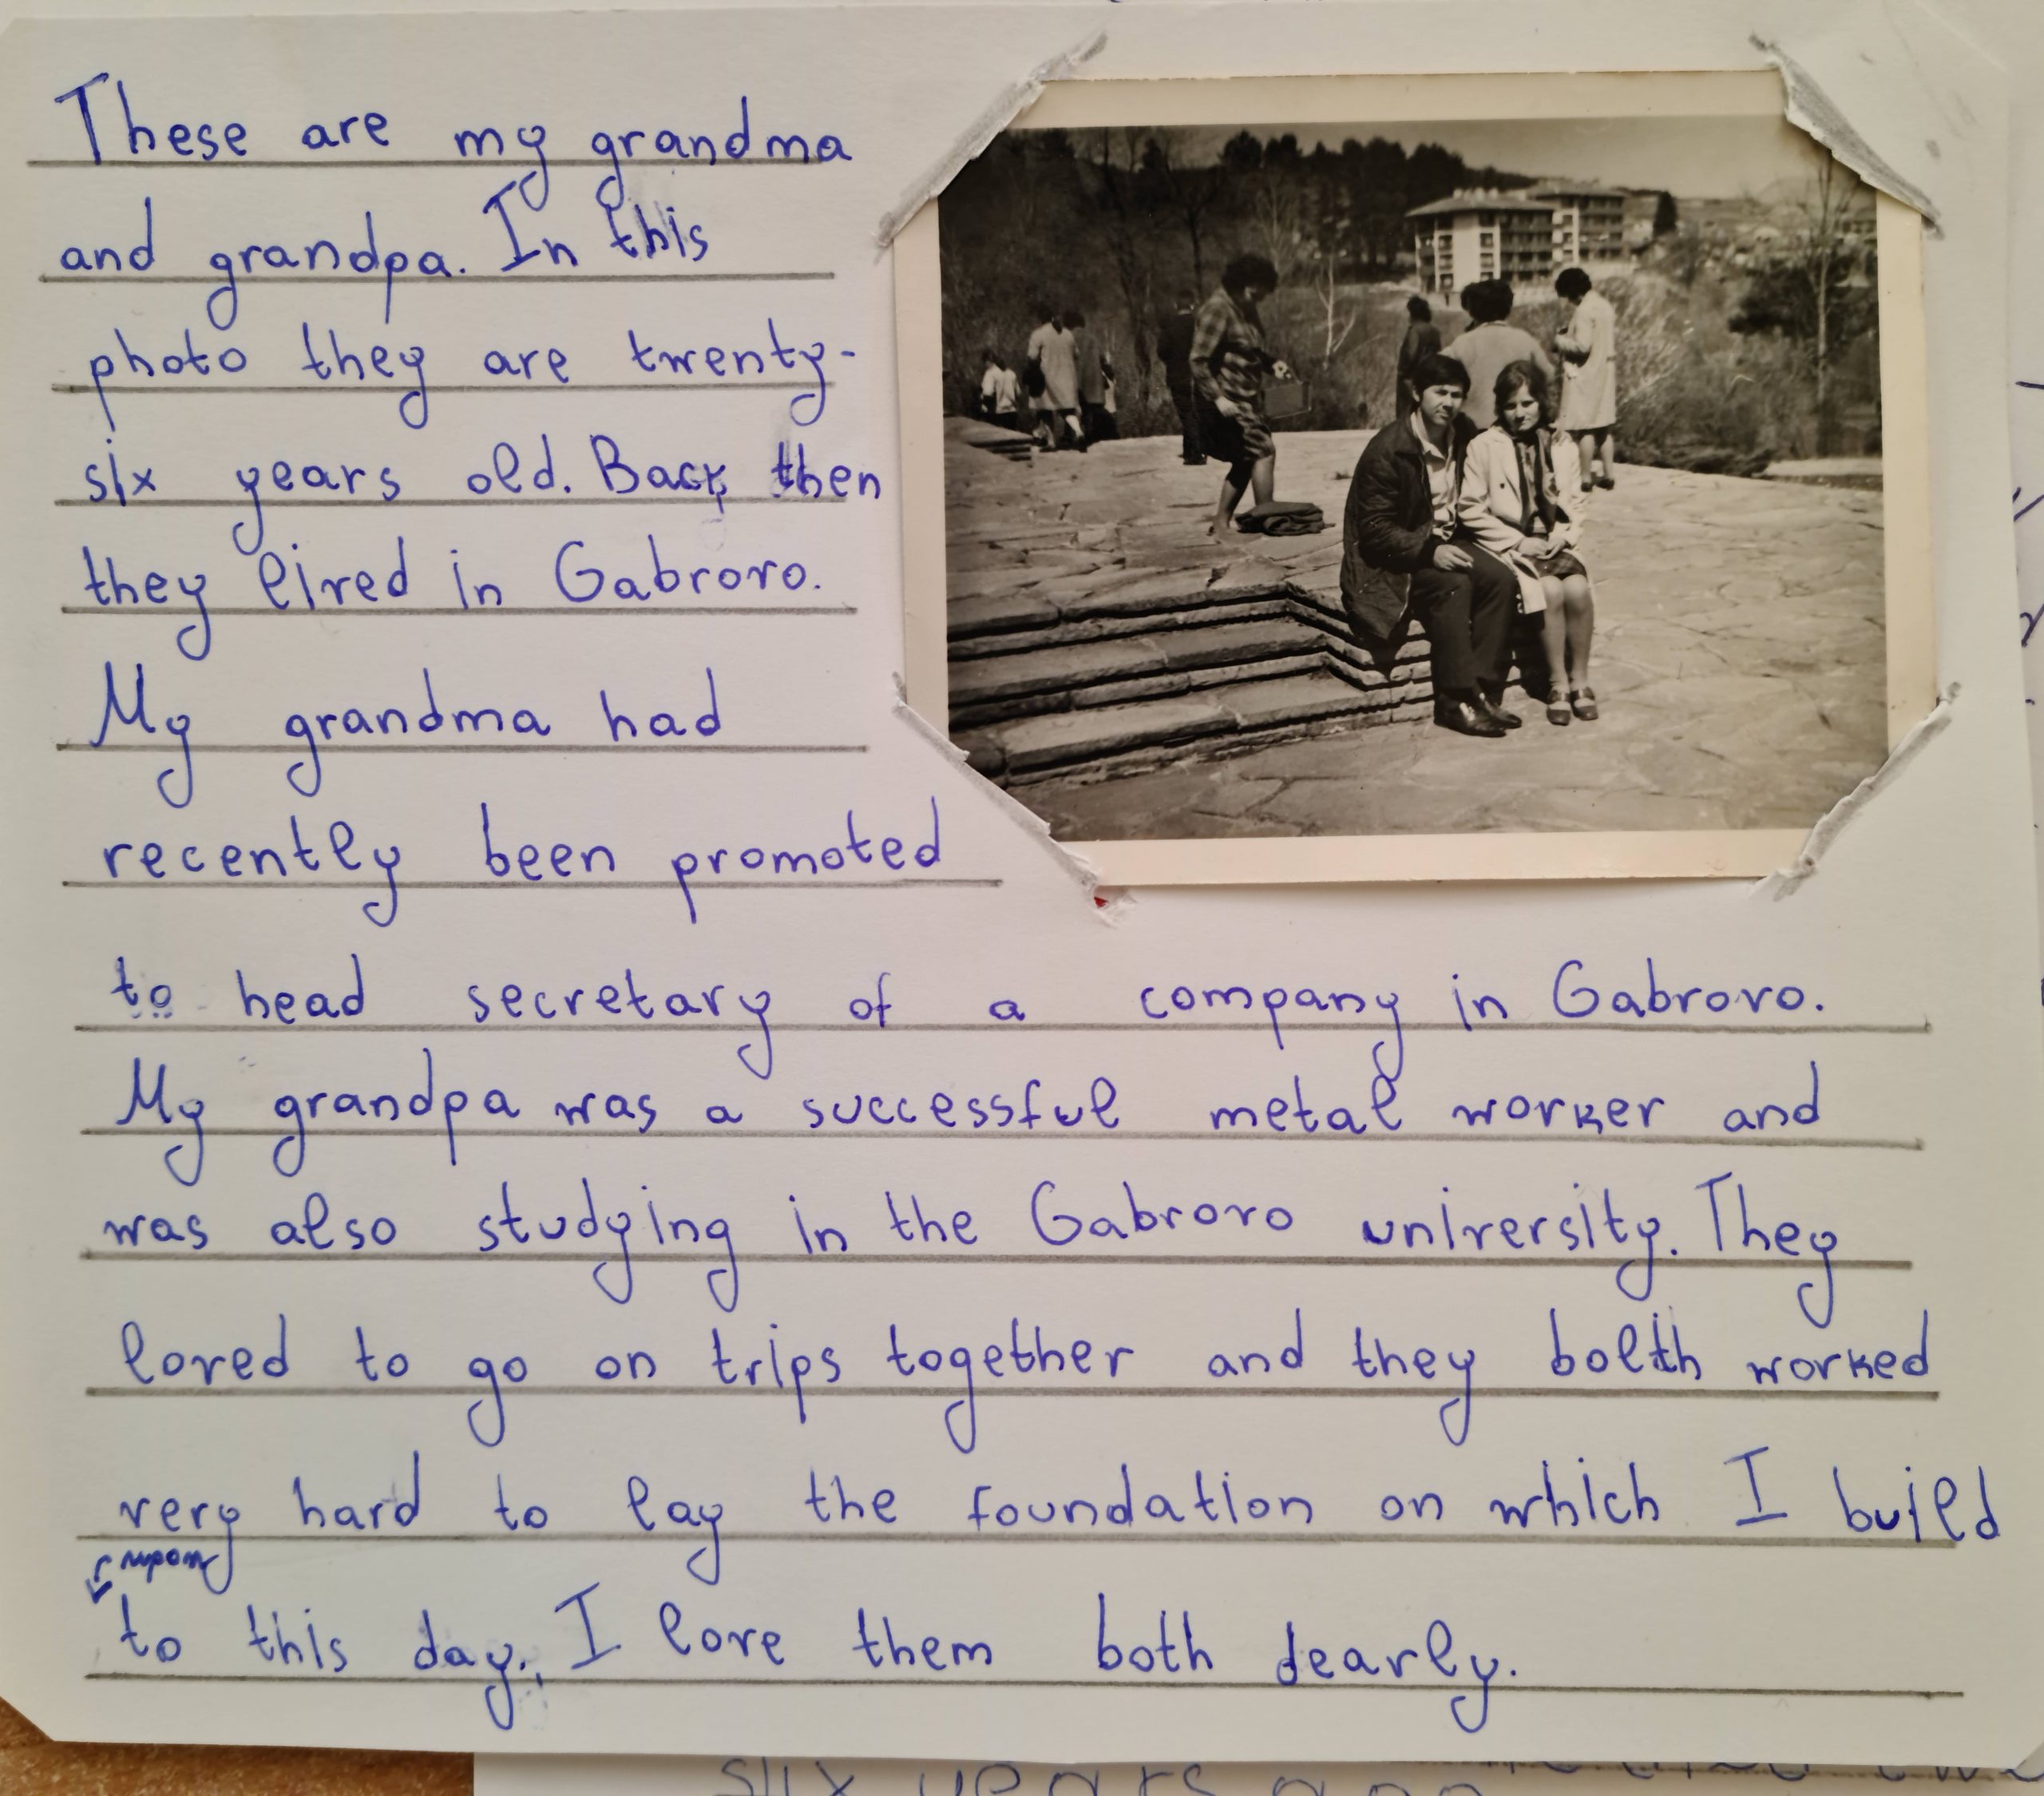 These are my grandma
and grandpa. In this
photo they are twenty-
six years old. Back then
they lived in Gabrovo.
My grandma had
recently been promoted
to head secretary of a company in Gabrovo.
My grandpa was a successful metal worker and
was also studying in the Gabrovo university. They
loved to go on trips together and they bolth worked
very hard to lay the foundation on which I build
upon
to this day. I love them both dearly.
six years